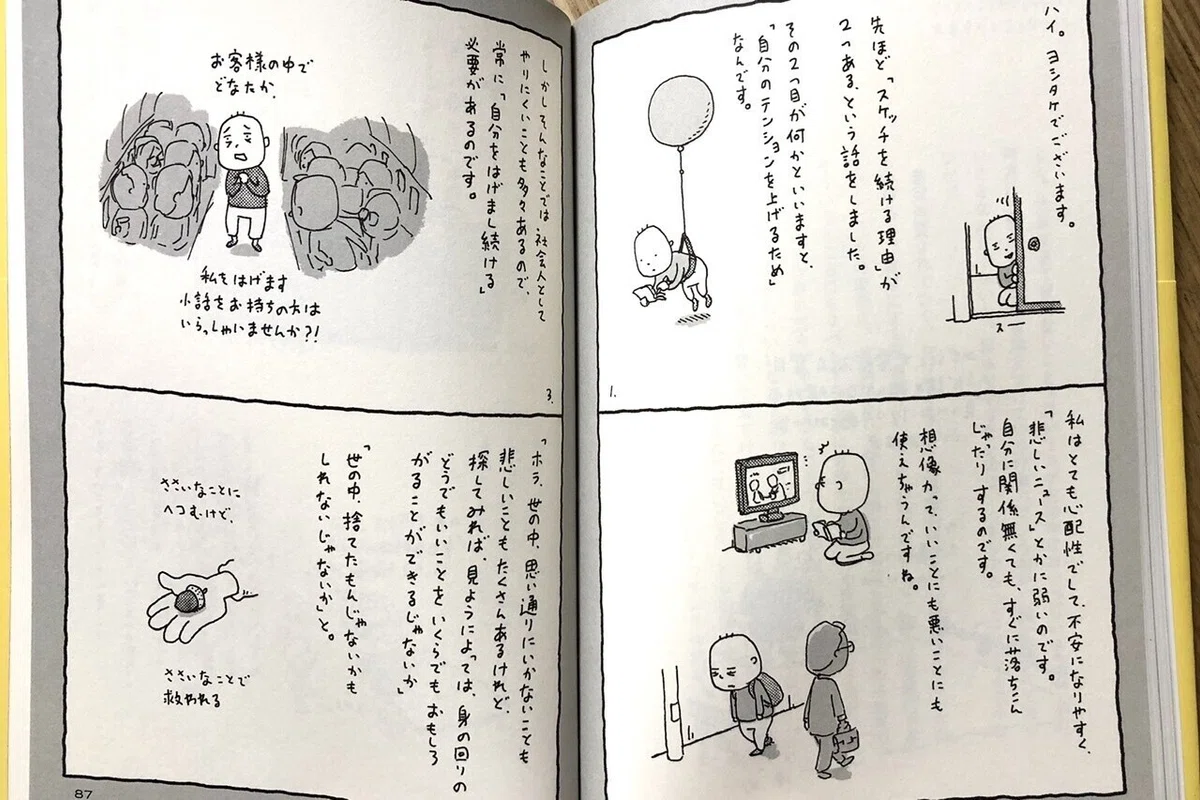 ハイ。ヨシタケでございます。
先ほど「スケッチを続ける理由」が
2つある、という話をしました。
その2つ目が何かといいますと、
「自分のテンションを上げるため」
なんです。
スー
1.
私はとても心配性でして、不安になりやすく、
「悲しいニュース」とかに弱いのです。
自分に関係無くても、すぐに落ちこん
じゃったりするのです。
想像力って、いいことにも悪いことにも
使えちゃうんですね。
しかしそんなことでは社会人として
やりにくいことも多々あるので、
常に「自分をはげまし続ける」
必要があるのです。
お客様の中で
どなたか、
私をはげます
小話をお持ちの方は
いらっしゃいませんか?!
3.
「ホラ、世の中、思い通りにいかないことも
悲しいこともたくさんあるけれど、
探してみれば、見ようによっては、身の回りの
どうでもいいことを いくらでもおもしろ
がることができるじゃないか」
「世の中、捨てたもんじゃないかも
しれないじゃないか」と。
ささいなことに
ヘコむけど、
ささいなことで
救われる
87